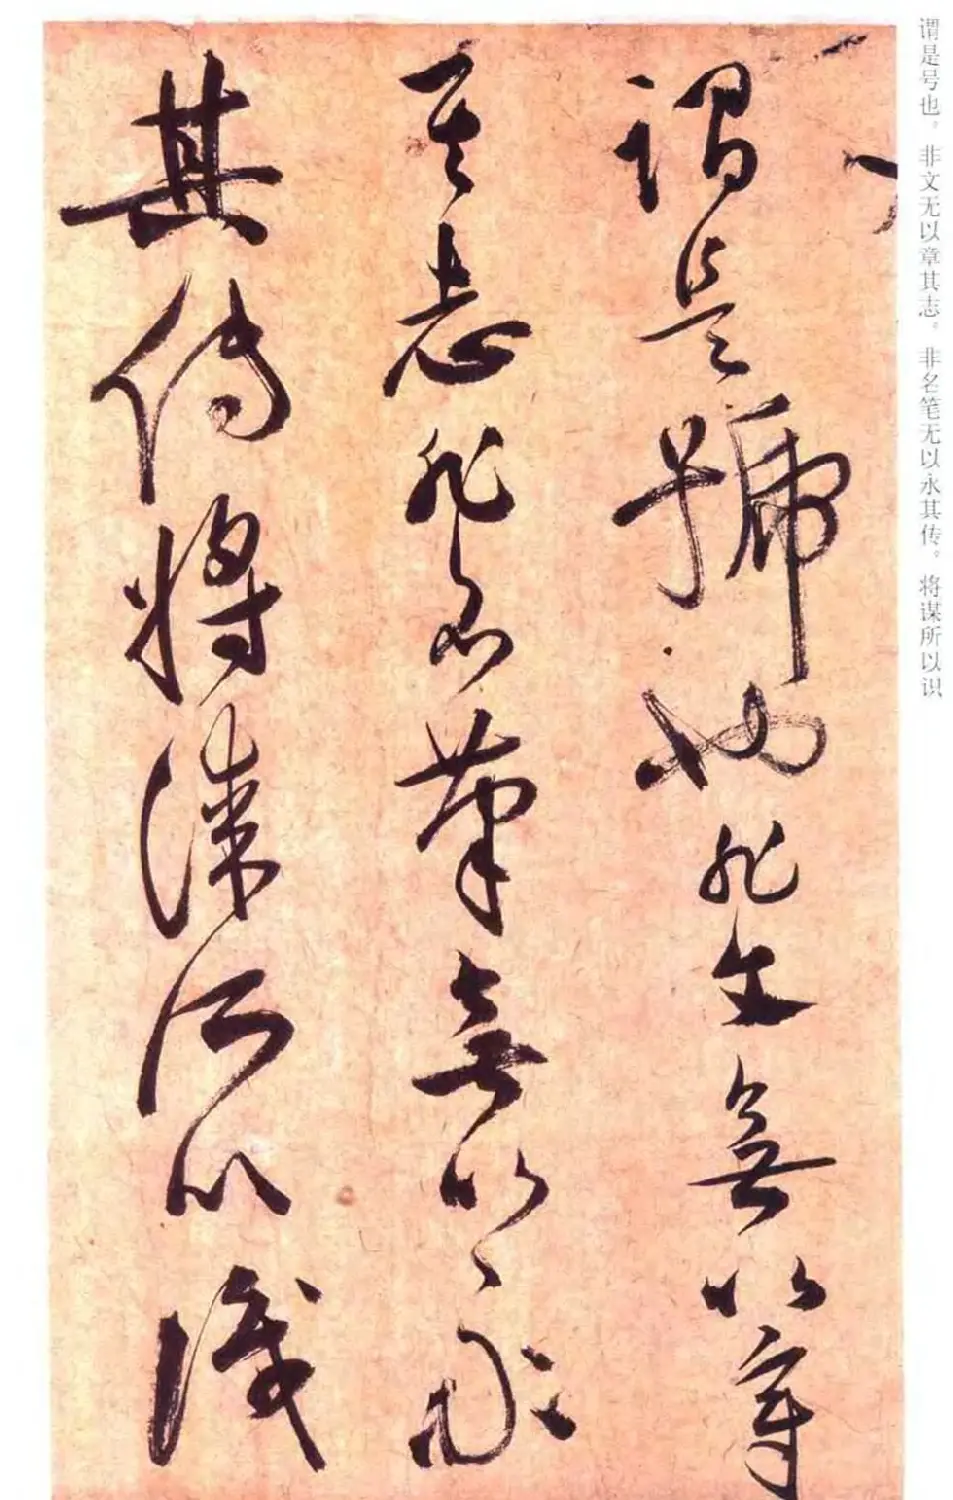 谓是号也。非文无以章其志。非名笔无以永其传。将谋所以识
謂是號也非文無以章
其志非名筆無以永
其傳將謀所以識